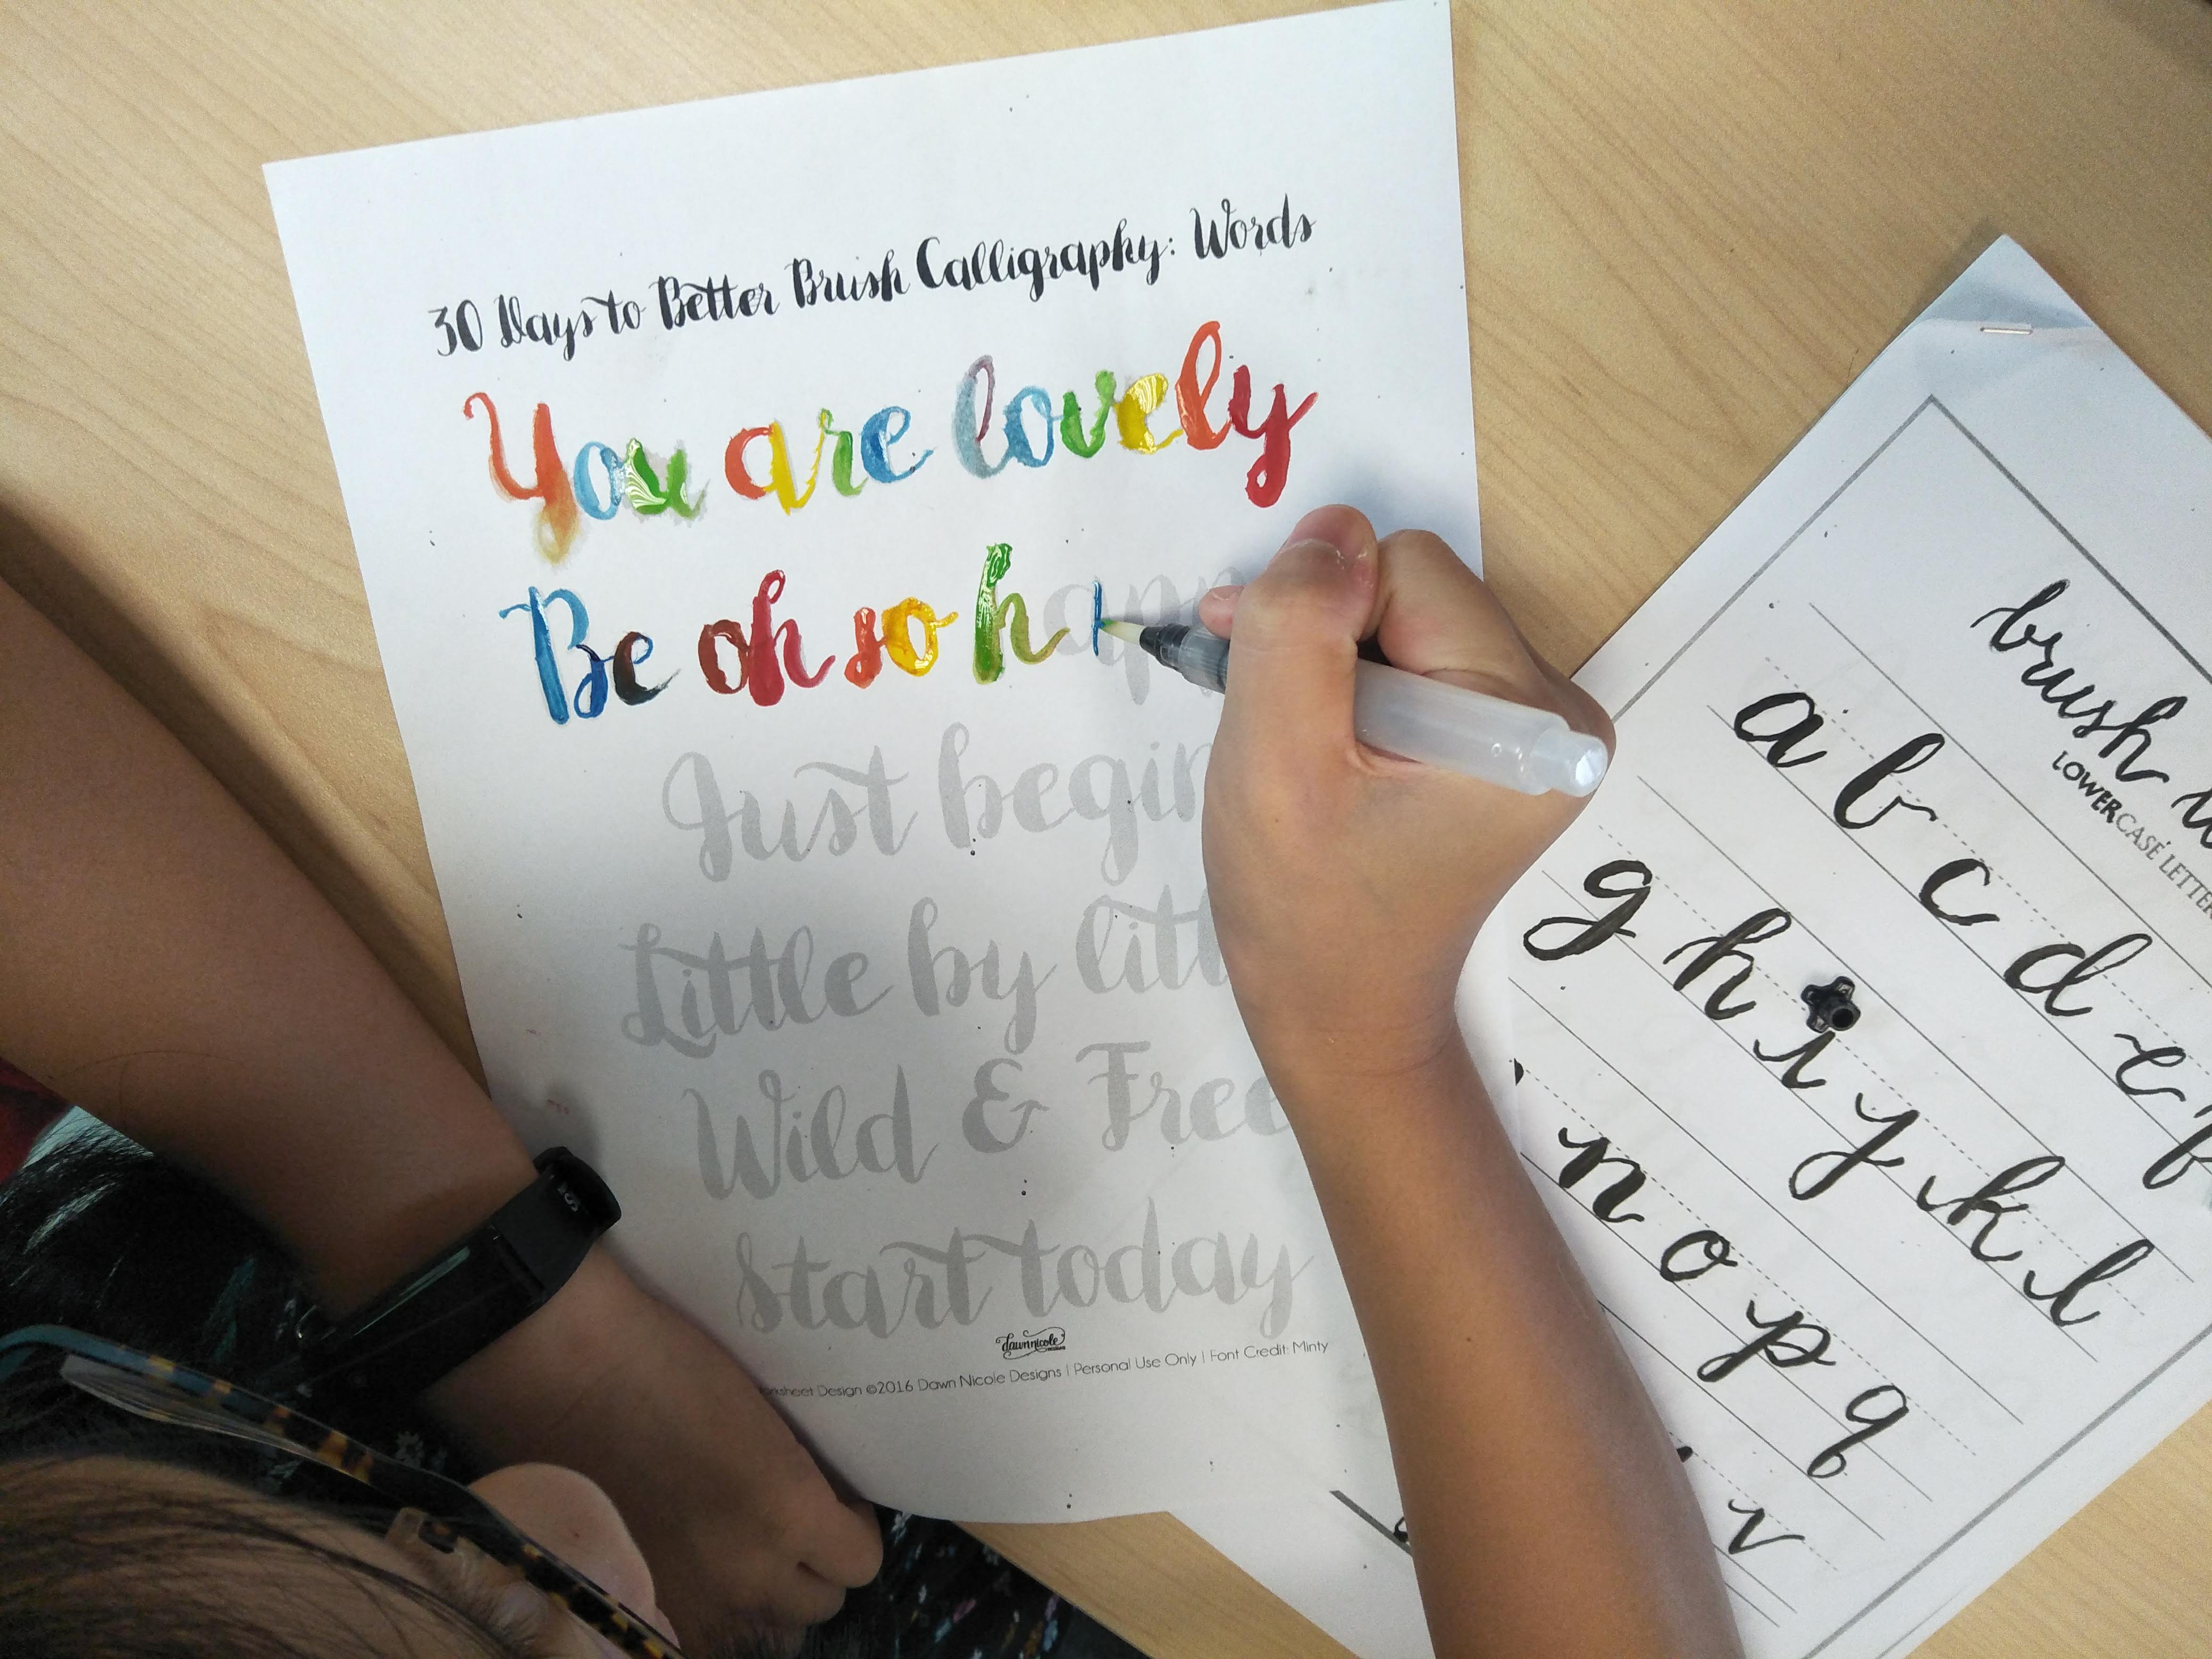 30 Days to Better Brush Calligraphy: Words
You are lovely
Be oh so happ
Just begin
Little by litt
Wild & Free
Start today
dawnnicole
Worksheet Design ©2016 Dawn Nicole Designs | Personal Use Only | Font Credit: Minty
brush
LOWERCASE LETTER
a b c d e f
g h i y k l
n o p q
v